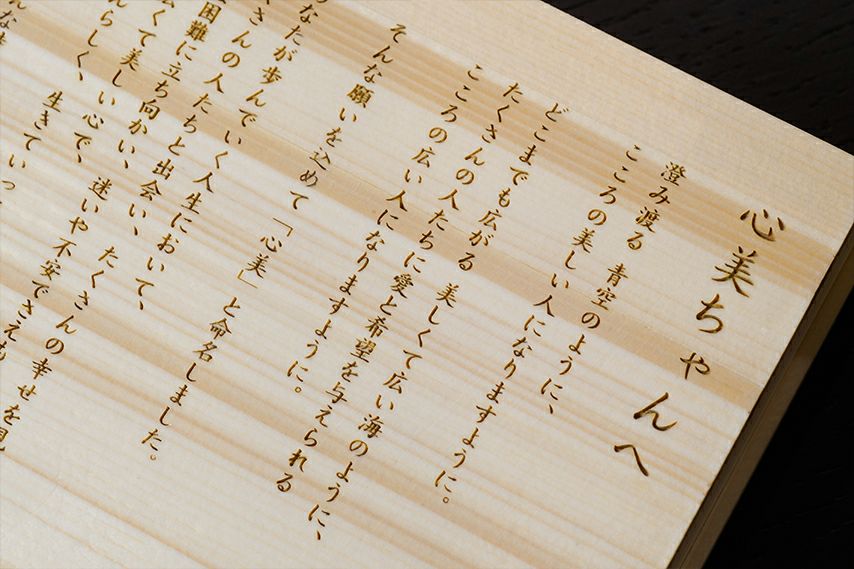 心美ちゃんへ
澄み渡る 青空のように、
こころの美しい人になりますように。
どこまでも広がる 美しくて広い海のように、
たくさんの人たちに愛と希望を与えられる
こころの広い人になりますように。
そんな願いを込めて「心美」と命名しました。
なたが歩んでいく人生において、
さんの人たちと出会い、
困難に立ち向かい、 たくさんの幸せを見
くて美しい心で、 迷いや不安でさえも
らしく、 生きていっ